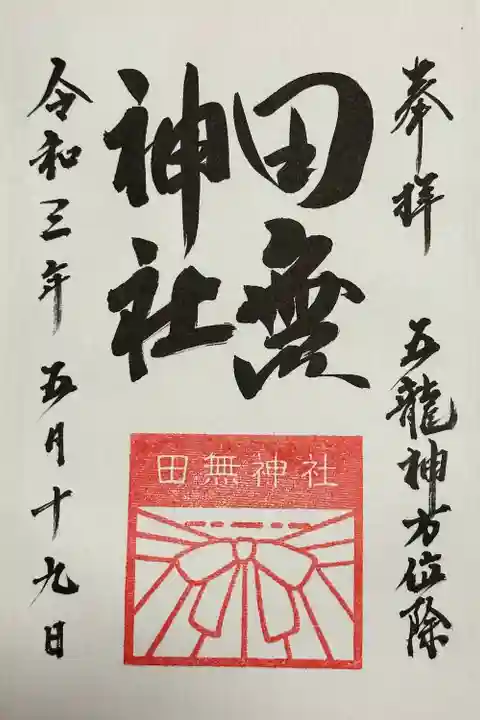 奉拝
五龍神方位除
田無
神社
田無神社
令和三年五月十九日